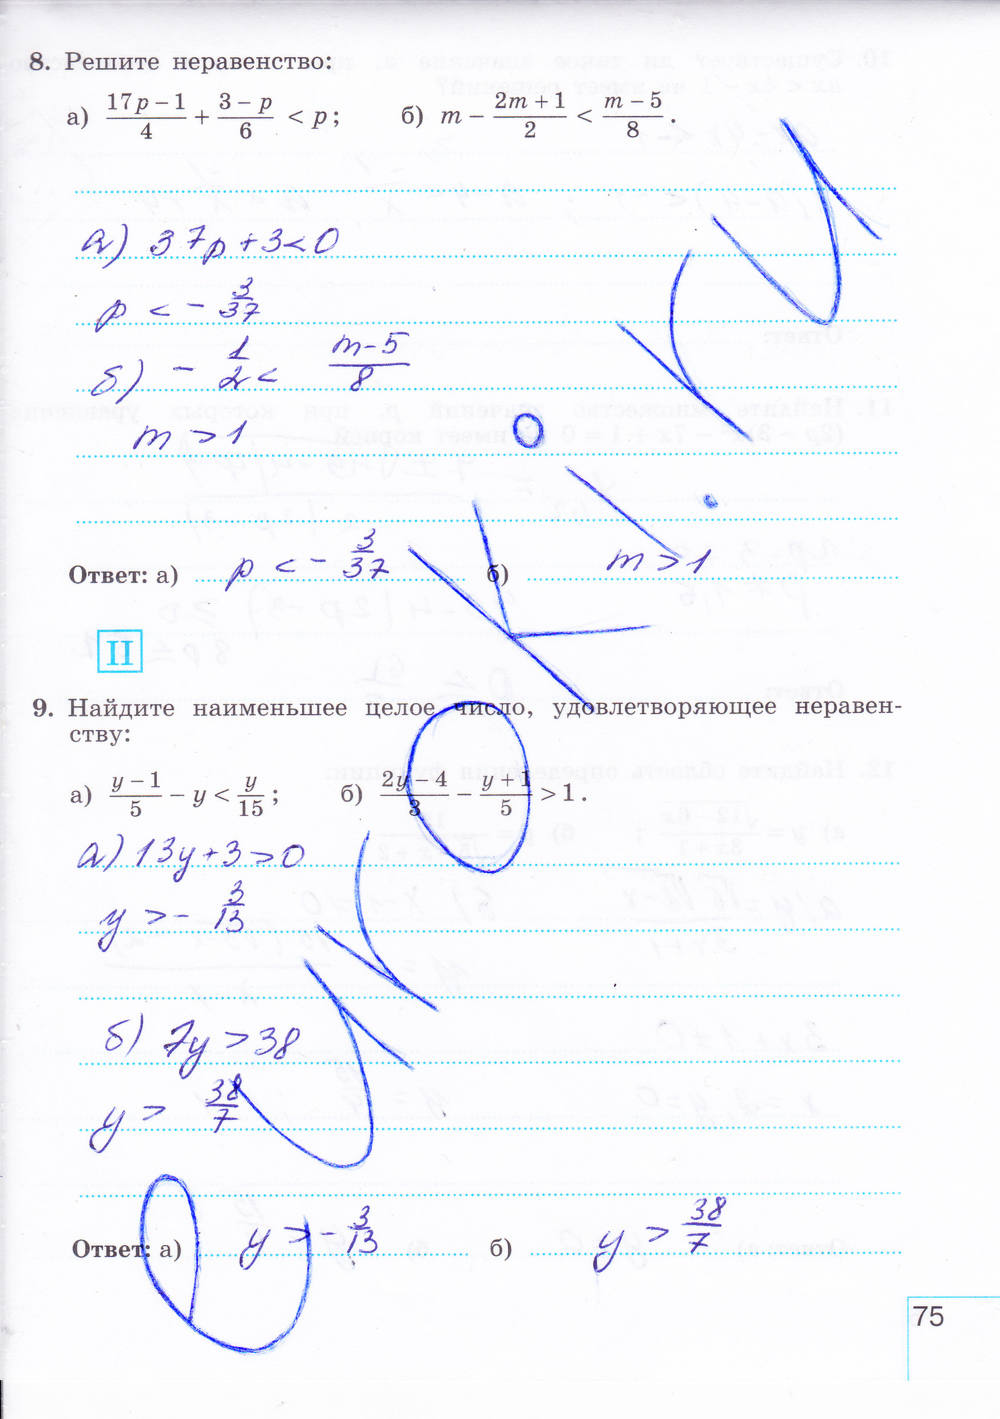 8. Решите неравенство:
а) (17p − 1)/4 + (3 − p)/6 < p; б) m − (2m + 1)/2 < (m − 5)/8.
а) 37p + 3 < 0
p < − 3/37
б) − 1/2 < (m − 5)/8
m > 1
Ответ: а) p < − 3/37 б) m > 1
II
9. Найдите наименьшее целое число, удовлетворяющее неравен-
ству:
а) (y − 1)/5 − y < y/15; б) (2y − 4)/3 − (y + 1)/5 > 1.
а) 13y + 3 > 0
y > − 3/13
б) 7y > 38
y > 38/7
Ответ: а) y > − 3/13 б) y > 38/7
75